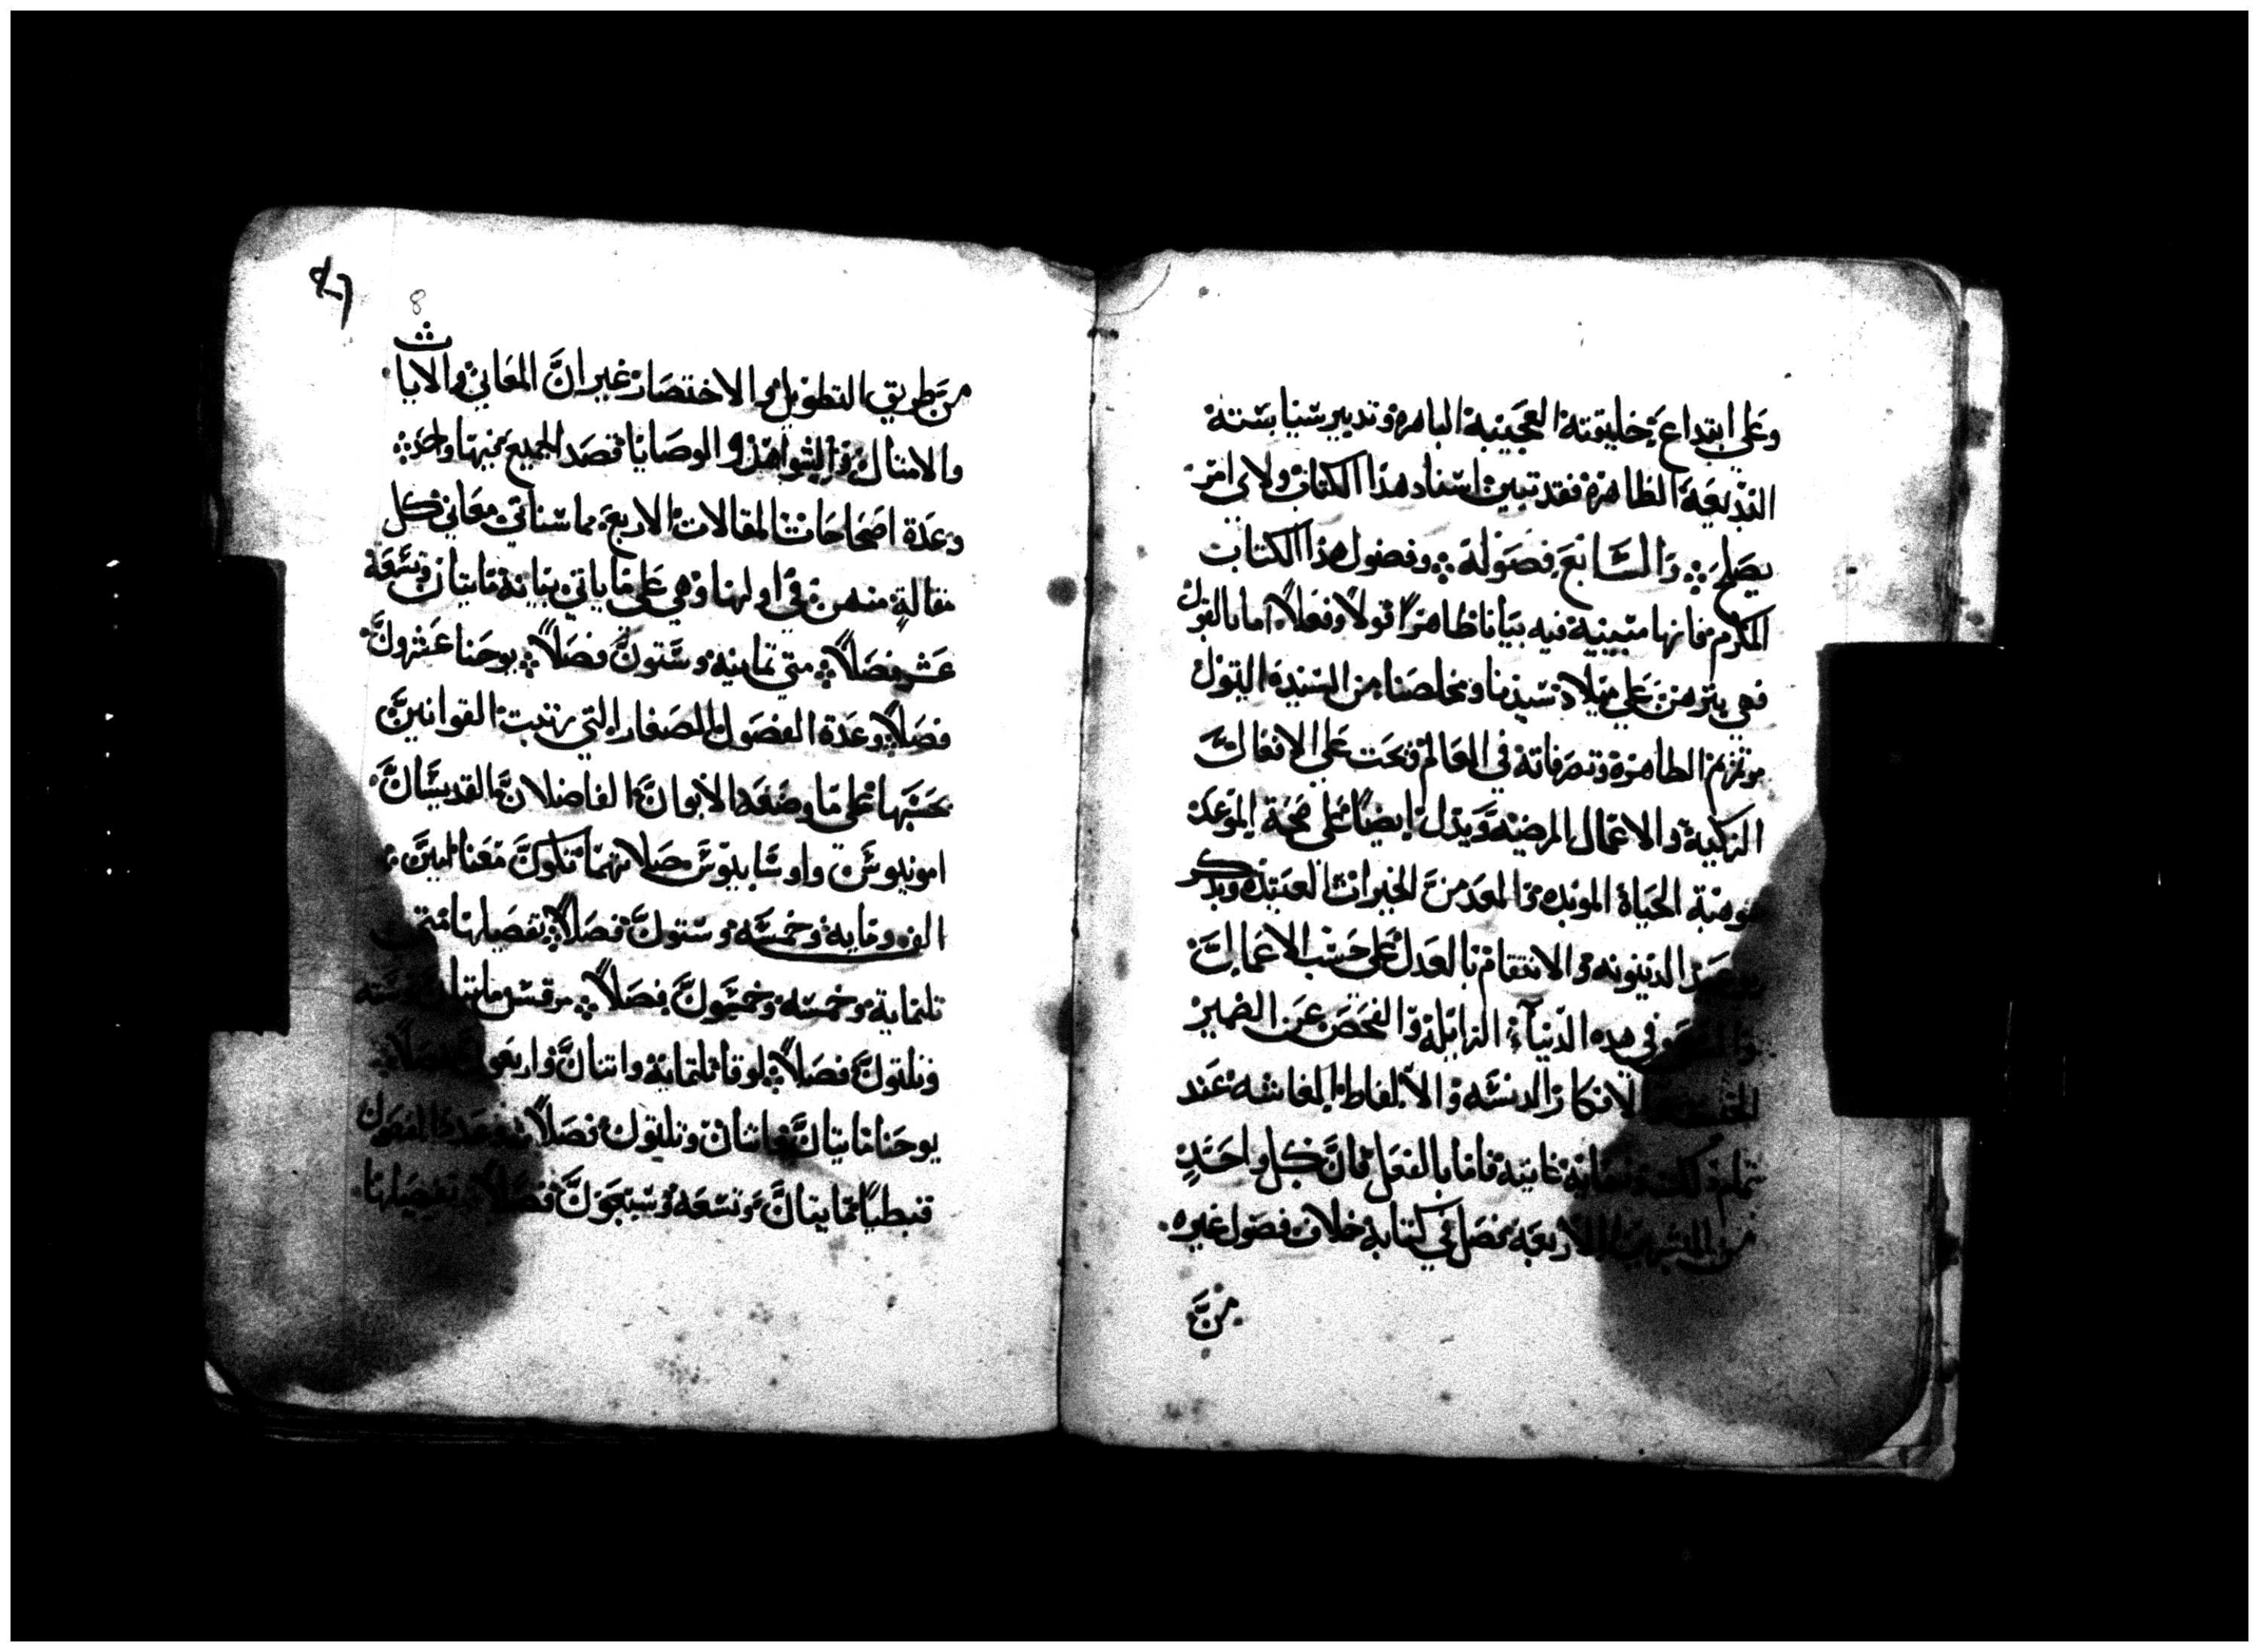 وعلي ابتداع خليقته العجيبة الباهرة وتدبير سياسته
البديعة الظاهرة فقد تبين اسناد هذا الكتاب ولاي امر
يصلح ۞ والسابع فصوله ۞ وفصول هذا الكتاب
المكرم فانها مبينة فيه بيانا ظاهرا قولا وفعلا اما بالقول
فهي يبرهن علي ميلاد سيدنا ومخلصنا من السيدة البتول
مرتمريم الطاهرة وتصرفاته في العالم وتحت علي الافعال
الزكية والاعمال المرضيه ويدل ايضا علي صحة الموعد
بموهبة الحياة الموبده والمعد من الخيرات العتيدة ويذكر
الدينونه والانتقام بالعدل علي حسب الاعمال
في هذه الدنيآء الزايلة والفحص عن الضمير
الافكار الدنسه والالفاظ الغاشه عند
تمام كلمة ونهاية غايته فاما بالفعل فان لكل واحد
من المبشرين الاربعة فصل في كتابه خلاف فصول غيره
من
8
من طريق التطويل والاختصار غير ان المعاني والايات
والامثال والشواهد والوصايا قصد الجميع فيها واحد ۞
وعدة اصحاحات المقالات الاربع مما سناتي معاني كل
مقالة منهن في اولها وهي علي ما ياتي بيانه مايتان وتسعة
عشر فصلا ۞ متي ثمانيه وستون فصلا ۞ يوحنا عشرون
فصلا وعدة الفصول الصغار التي رتبت القوانين
بحسبها علي ما وضعه الابوان الفاضلان القديسان
امونيوس واوسابيوس صلاتهما تكون معنا امين ۞
الف ومايه وخمسه وستون فصلا ۞ تفصيلها متي
تلتماية وخمسه وخمسون فصلا ۞ مرقس مايتان وسته
وتلتون فصلا ۞ لوقا تلتماية واتنان واربعون فصلا ۞
يوحنا مايتان واتنان وتلتون فصلا ۞ وعدد الفصول
قبطيا مايتان وتسعه وسبعون فصلا ۞ تفصيلها